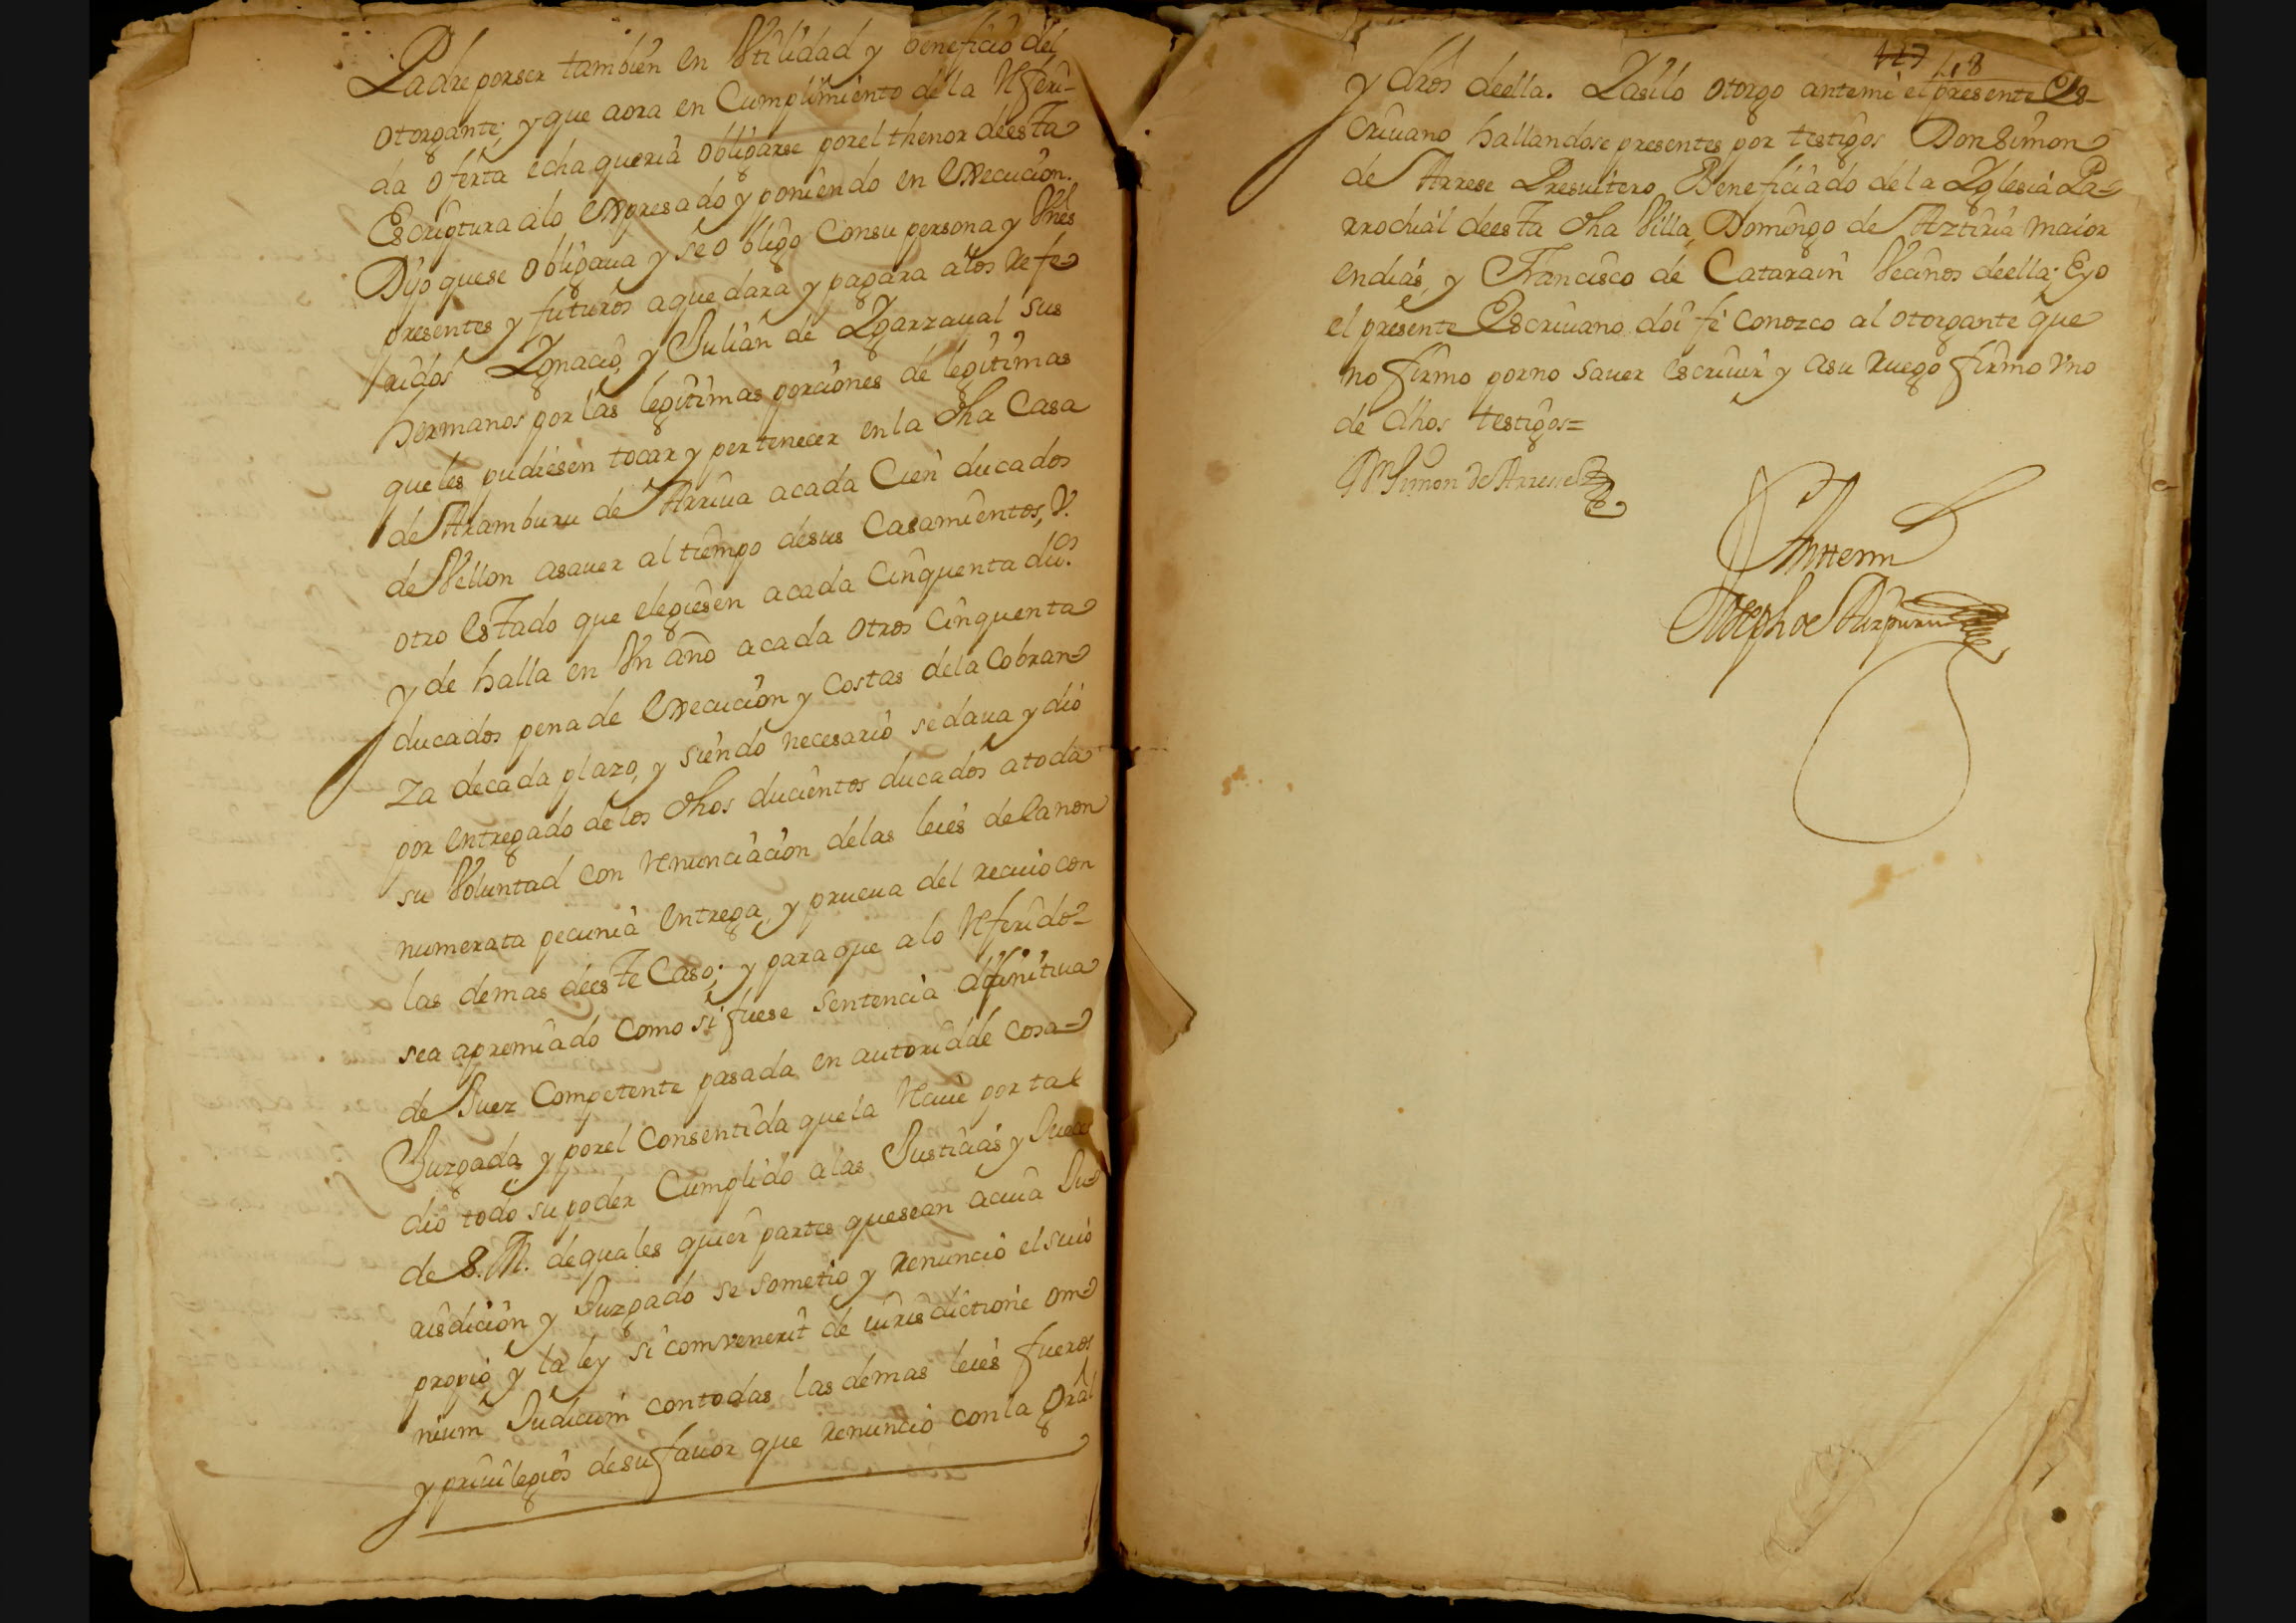 Padre por ser tambien en Vtilidad y beneficio del
otorgante; y que aora en Cumplimiento de la Referi-
da oferta echa queria obligarse por el thenor de esta
Escriptura a lo expresado y poniendo en execucion.
Dijo que se obligaua y se obligo Con su persona y Vnes
presentes y futuros a que dara y pagara a los Refe-
ridos Ygnacio, y Julian de Ygarzaual sus
hermanos por las legitimas porciones de legitimas
que les pudiesen tocar y pertenecer en la dha Casa
de Aramburu de Arriua a cada Cien ducados
de Vellon a sauer al tiempo de sus Casamientos, V.
otro estado que elegiesen a cada Cinquenta du.os
y de halla en Vn año a cada otros Cinquenta
ducados pena de execucion y costas de la Cobran-
za de cada plazo, y siendo necesario se daua y dio
por entregado de los dhos ducientos ducados a toda
su Voluntad con renunciacion de las leies de la non
numerata pecunia entrega, y prueua del recuio con
las demas de este Caso; y para que a lo Referido-
sea apremiado como si fuese sentencia difinitiua
de Juez Competente pasada en autoridde cosa-
Juzgada y por el Consentida que la Reciue por tal
dio todo su poder Cumplido a las Justicias y Jueces
de S. M. de quales quier partes que sean a cuia Ju-
risdicion y Juzgado se sometio y renuncio el suio
propio y la ley si comvenerit de iurisdictione om-
nium Judicum con todas las demas leies fueros
y priuilegios de su fauor que renuncio con la Gral
127
y dros de ella. Y asi lo otorgo ante mi el presente Es-
criuano hallandose presentes por testigos Don Simon
de Arrese Presuitero Beneficiado de la Yglesia Pa-
rrochial de esta dha Villa, Domingo de Aztiria maior
en dias, y Francisco de Catarain Vecinos de ella; E yo
el presente Escriuano doi fe conozco al otorgante que
no firmo por no sauer escriuir y a su ruego firmo Vno
de dhos testigos=
Dn Simon de Arrese
Ante mi
Joseph de Aizpuru